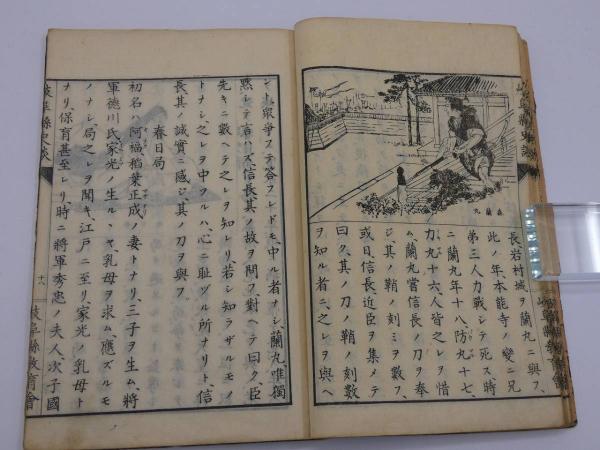 丸蘭森
長岩村城ヲ蘭丸ニ與フ、
此ノ年本能寺ノ變ニ兄
弟三人力戰シテ死ス時
ニ蘭丸年十八防丸十七、
力丸十六人皆之レヲ惜
ム、蘭丸嘗信長ノ刀ヲ奉
ジ、其ノ鞘ノ刻ミヲ數フ、
或日、信長近臣ヲ集メテ
曰ク、其ノ刀ノ鞘ノ刻數
ヲ知ル者ニ、之レヲ與ヘ
ント、衆爭フテ答フレドモ、中ル者ナシ、蘭丸唯獨
默シテ言ハズ、信長、其ノ故ヲ問フ、對ヘテ曰ク、臣
先キニ數ヘテ之レヲ知レリ、若シ知ラザルモノ
トナシ、之レヲ中ツルハ、心ニ耻ヅル所ナリト、信
長、其ノ誠實ニ感ジ、其ノ刀ヲ與フ、
春日局
初名ハ阿福、稻葉正成ノ妻トナリ、三子ヲ生ム、將
軍德川氏、家光ノ生ルヽヤ、乳母ヲ求ム、應ズルモ
ノナシ、局之レヲ聞キ、江戸ニ至リ、家光ノ乳母ト
ナリ、保育甚至レリ、時ニ將軍秀忠ノ夫人、次子國
岐阜縣史談
十八
岐阜縣教育會